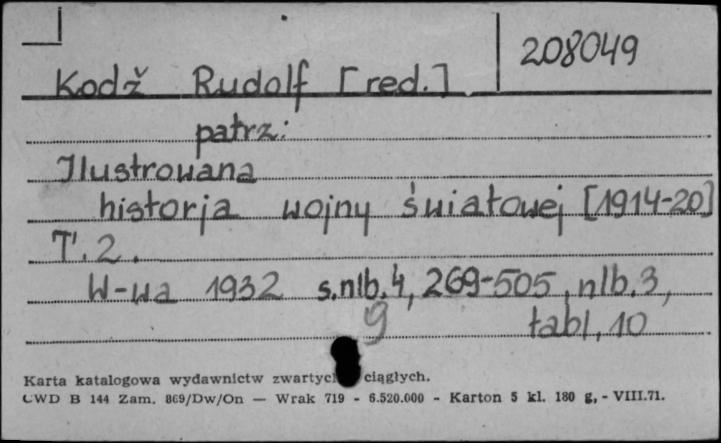 208049
Kodž Rudolf [red.]
patrz:
Ilustrowana
historja wojny światowej [1914-20]
T. 2.
W-wa 1932 s.nlb.4, 269-505, nlb.3,
9 tabl. 10
Karta katalogowa wydawnictw ciągłych.
CWD B 144 Zam. 869/Dw/On — Wrak 719 - 6.520.000 - Karton 5 kl. 180 g, - VIII.71.